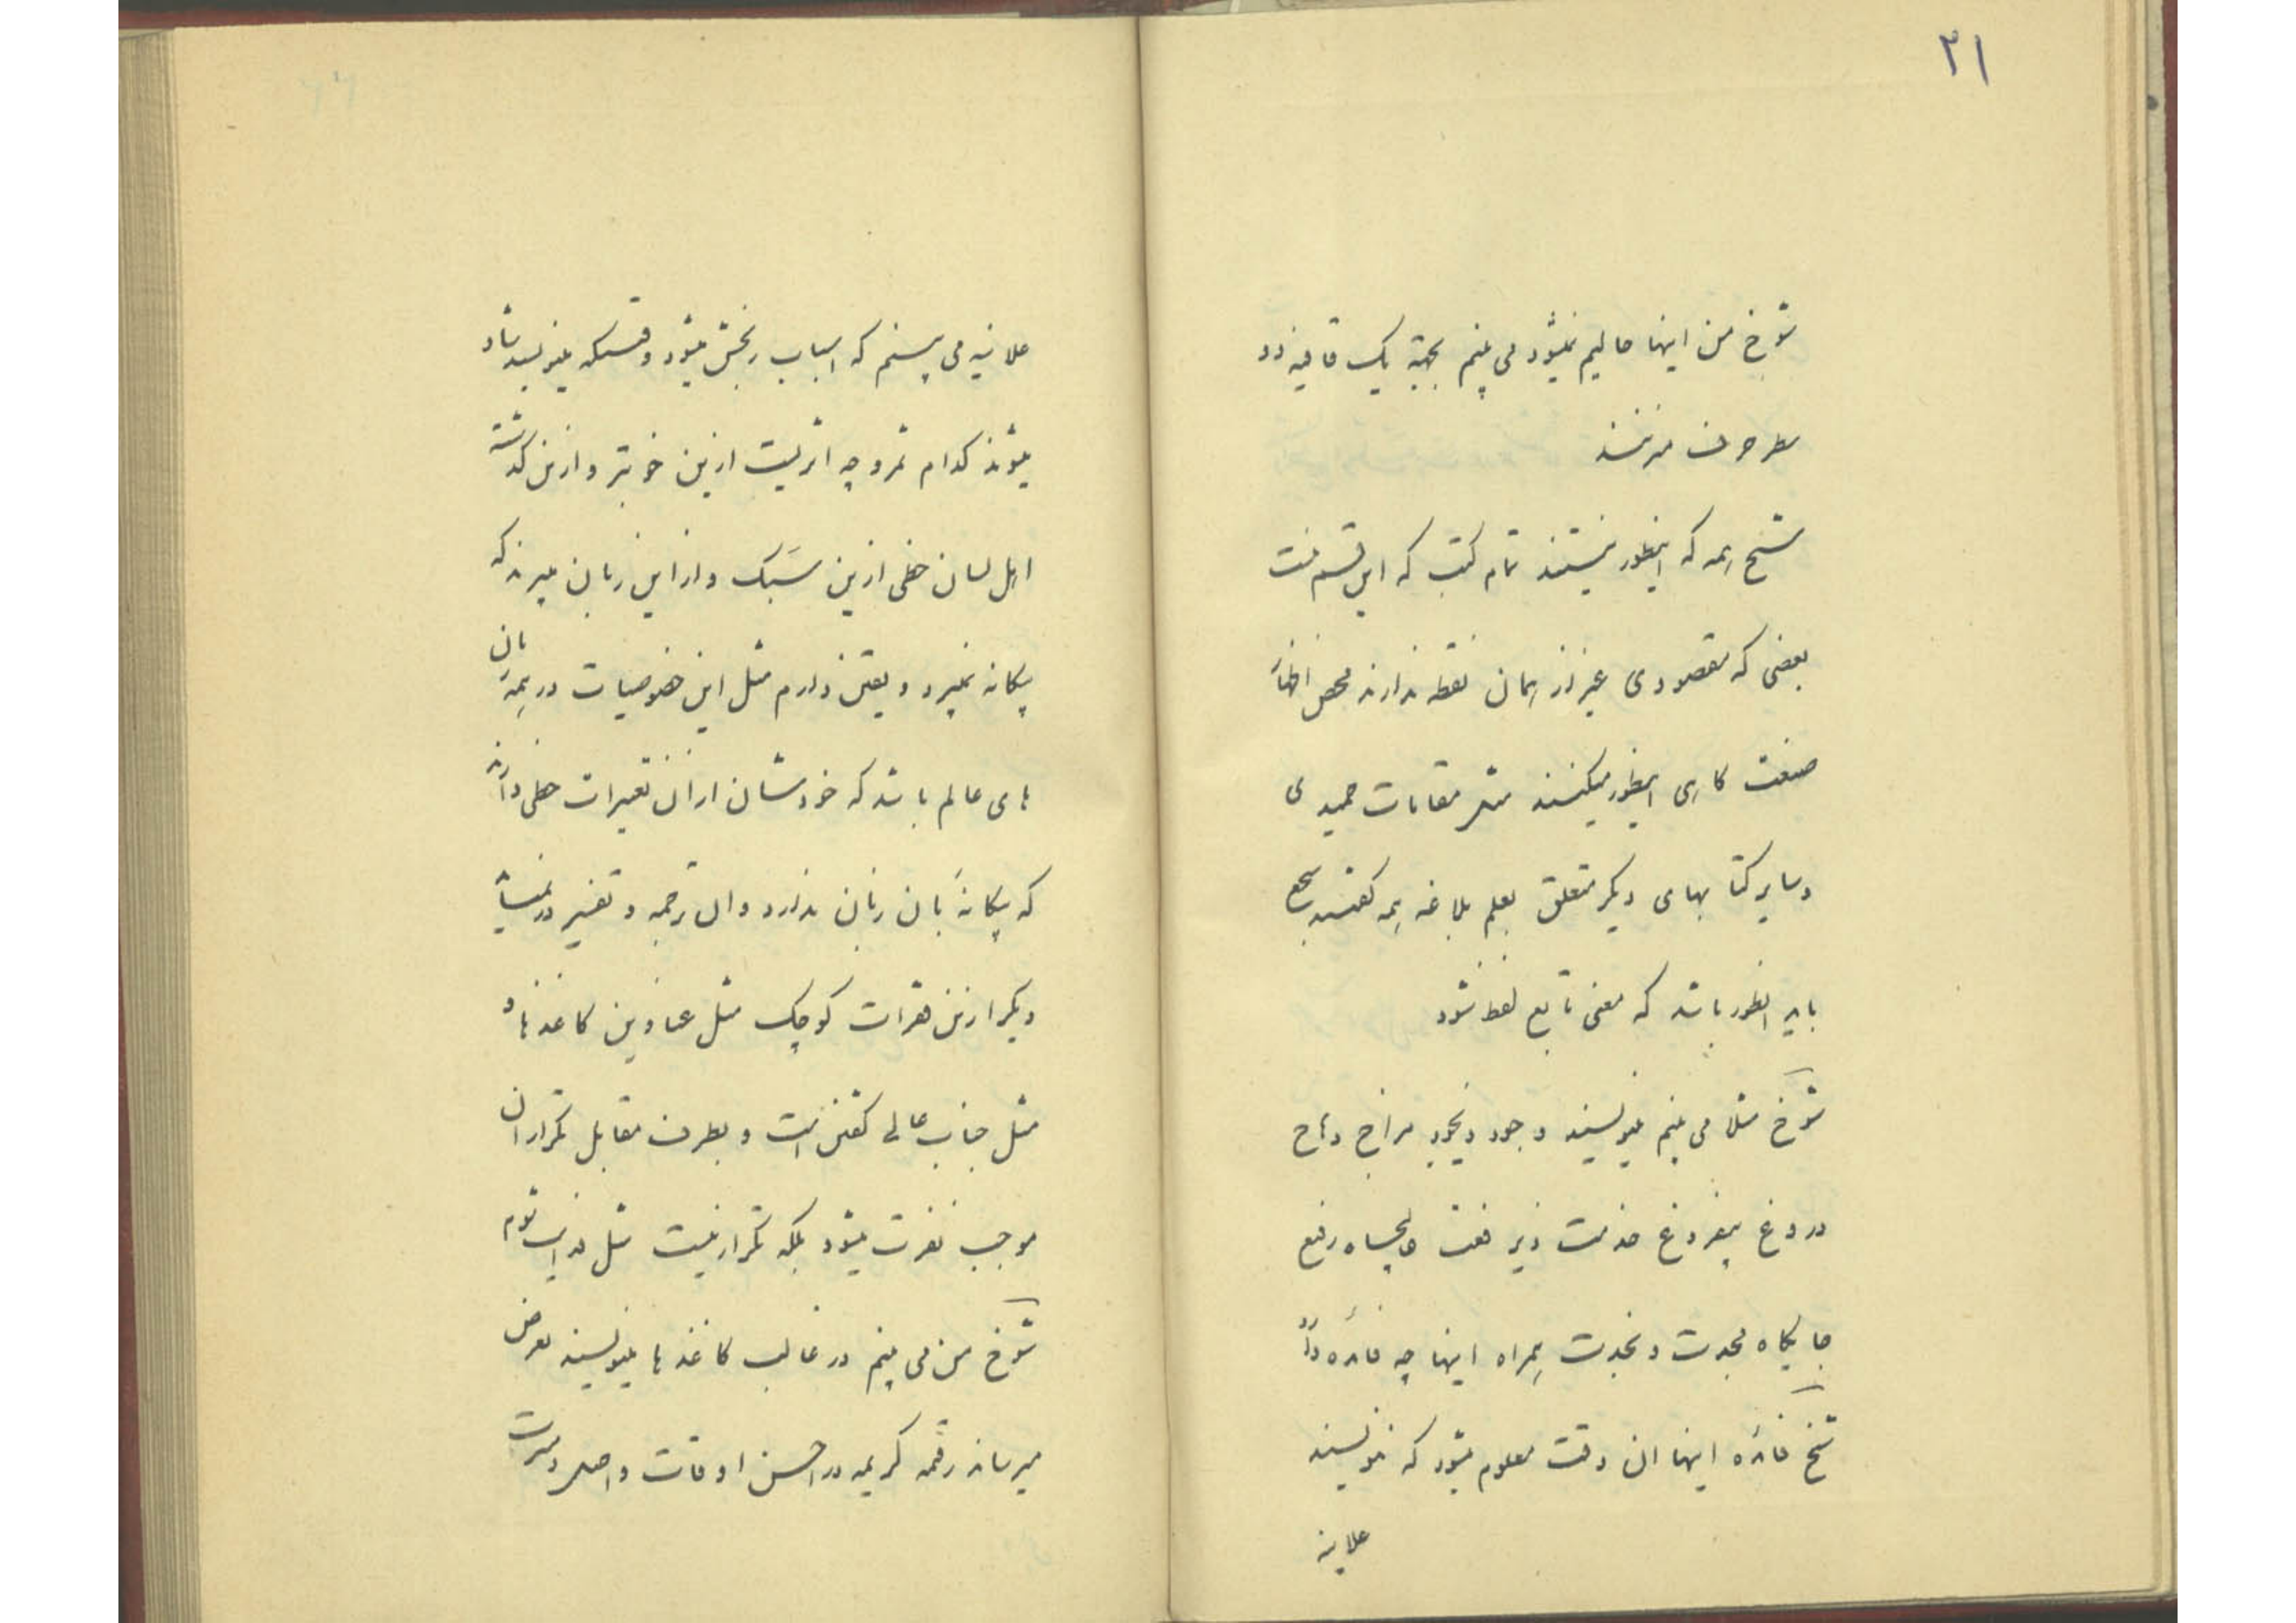 ۲۱
شوخ من اینها حالیم نمیشود می بینم بجهة یک قافیه دو
سطر حرف میزنند
شیخ همه که اینطور نیستند تمام کتب که این قسم نیست
بعضی که مقصودی غیر از همان نقطه ندارند محض اظهار
صنعت کاری اینطور میکنند مثل مقامات حمیدی
و سایر کتابهای دیگر متعلق بعلم بلاغه همه گفتند سجع
باید انطور باشد که معنی تابع لفظ نشود
شوخ مثلا می بینم مینویسند وجود ذیجود مزاج وهاج
دروغ بیفروغ خدمت ذیرفعت جایگاه رفیع
جایگاه مجدت و نجدت همراه اینها چه فائده دارد
شیخ فائده اینها ان وقت معلوم میشود که ننویسند
علانیه
علانیه می بینم که اسباب رنجش میشود وقتیکه مینویسد شاد
میشوند کدام ثمر و چه اثریست ازین خوبتر و ازین گذشته
اهل لسان حظی ازین سَبک و از این زبان میبرند که
بیگانه نمیبرد و یقین دارم مثل این خصوصیات در همه زبان
های عالم باشد که خودشان از ان تعبیرات حظی دارند
که بیگانهٔ بان زبان ندارد و ان ترجمه و تفسیر در نمیاید
دیگر ازین فقرات کوچک مثل عناوین کاغذها و
مثل جناب عالی گفتن است و بطرف مقابل تکرار ان
موجب نفرت میشود بلکه تکرار نیست مثل فدایت شوم
شوخ من می بینم در غالب کاغذها مینویسند بعرض
میرساند رقمه کریمه در احسن اوقات و اصل و مسرت